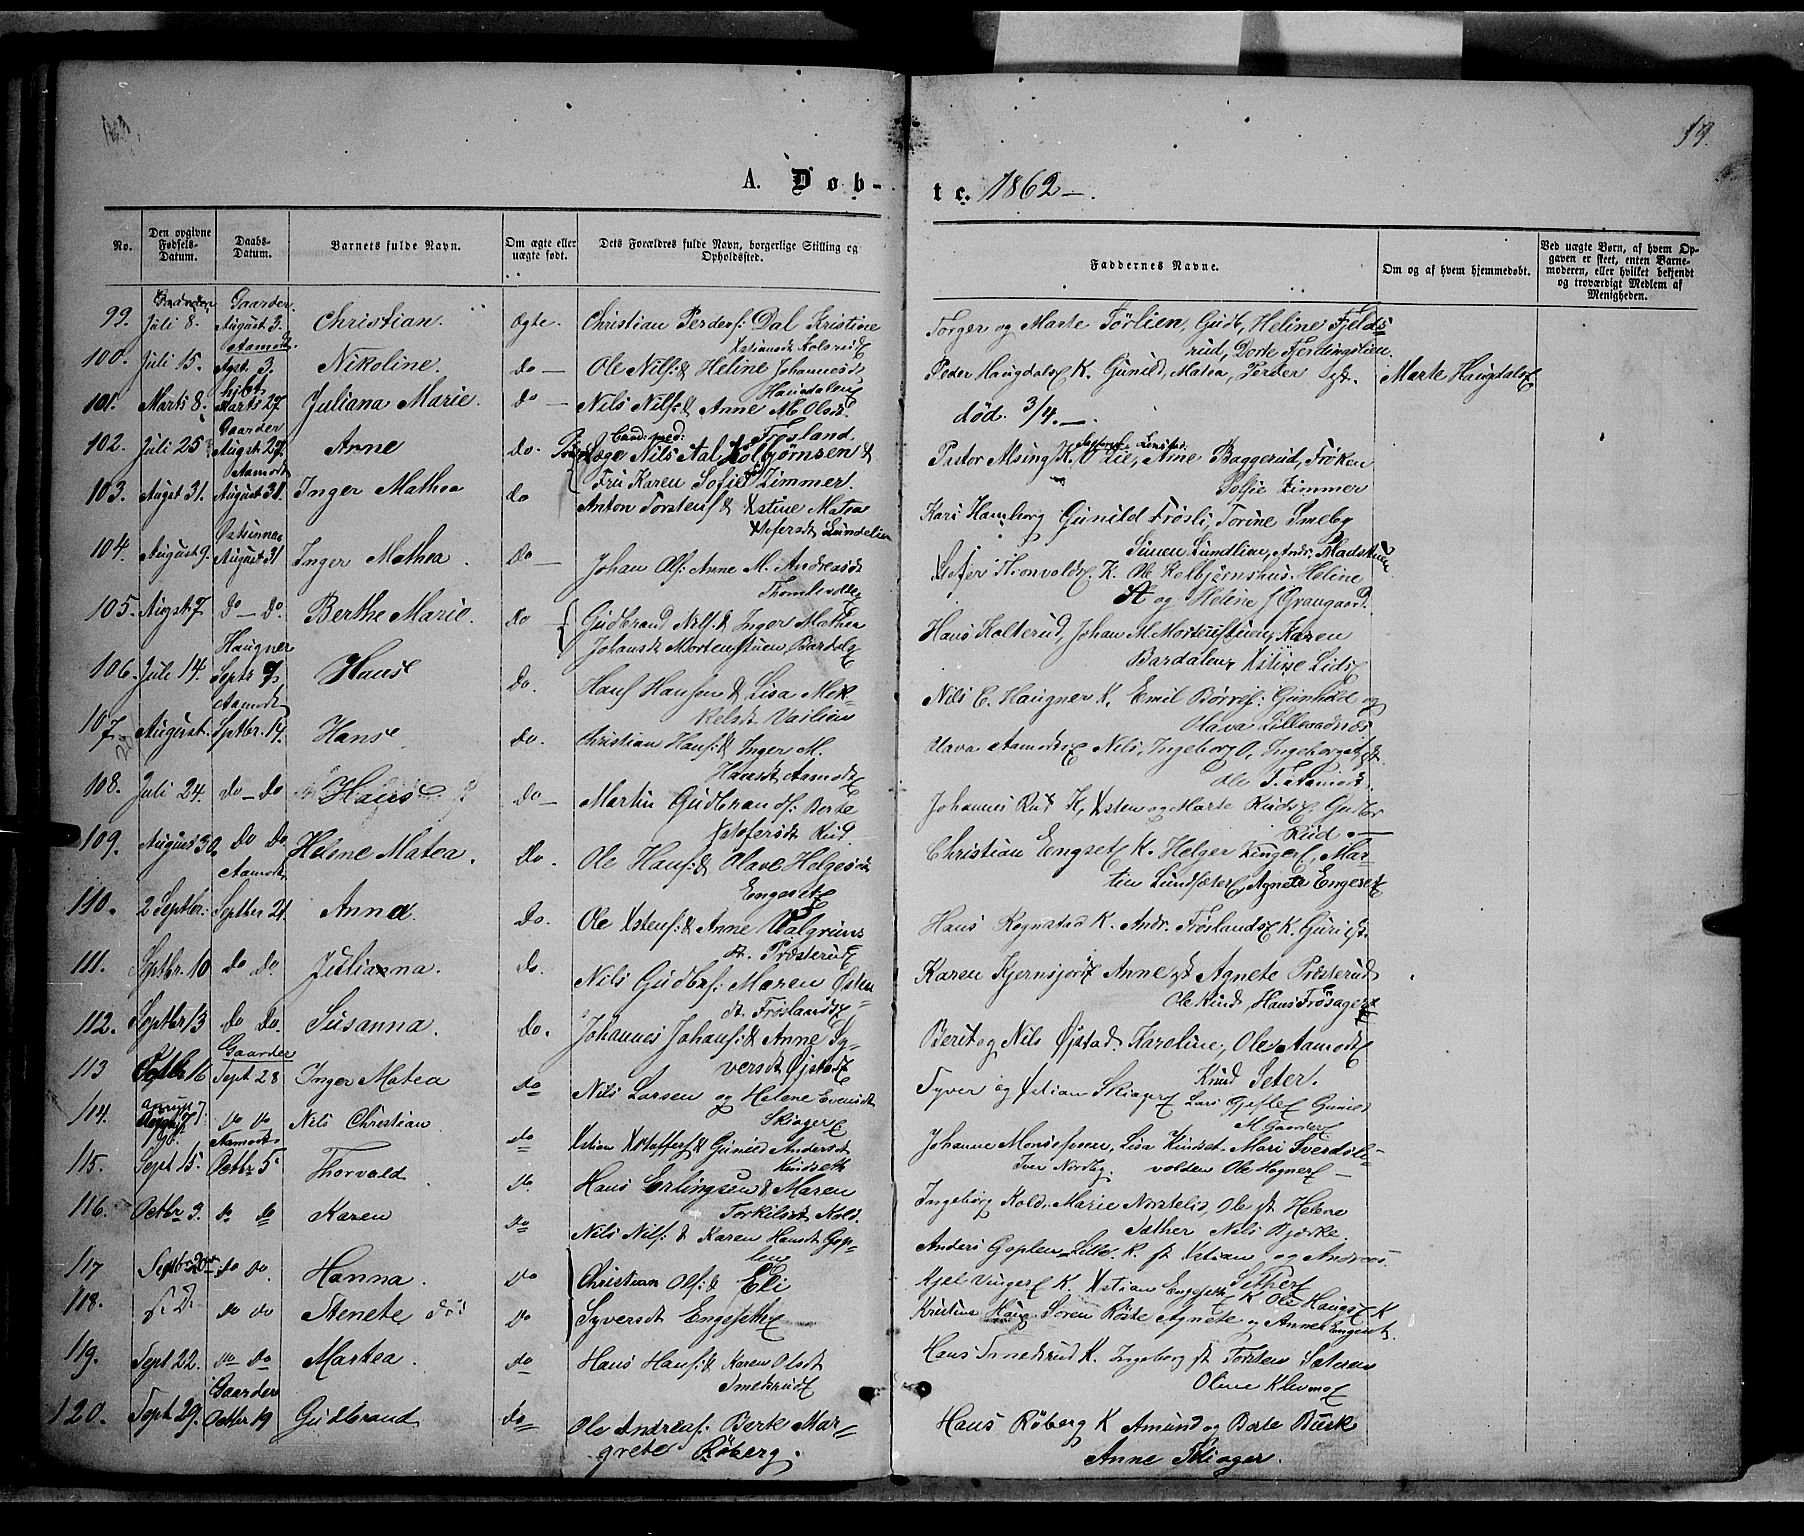 19.
A. Døb-
te. 1862 –.
No.
Den opgivne Fødsels-Datum.
Daabs-Datum.
Barnets fulde Navn.
Om ægte eller uægte født.
Dets Forældres fulde Navn, borgerlige Stilling og Opholdsted.
Faddernes Navne.
Om og af hvem hjemmedøbt.
Ved uægte Børn, af hvem Opgaven er skeet, enten Barnemoderen, eller hvilket bekjendt og troværdigt Medlem af Menigheden.
99. Juli 8. Gaarder August 3. Christian. Ægte. Christian Peders: Dal Kristine
Torger og Marte Törlien, Gudb, Heline Fjelds
rud, Dorte Fjerdingslien.
100. Juli 15. Aamodt Agst. 3. Nikoline. do – Ole Nils: & Heline Johannesdt
Haugdalen
Peder Haugdal K. Gunild, Matea, Peder Marte Haugdal
101. Marts 8. Marts 27 Juliana Marie. do – Nils Nils: & Anne M. Olsdt.
Frösland.
død. 3/4. –
102. Juli 25 Gaarder August 27. Arne do. Cand: med: Læge Nils Aal Kolbjørnsen &
Fru Karen Sofie Zimmer.
Pastor Alsing K. Arne Baggerud, Frøken
Sofie Zimmer
103. August 31. Aamodt August 31. Inger Mathea do Anton Torstens & Xstine Matea
Xstofersdt Lundelien
Kari Hamborg Gunild Frösli, Torine Smeby
Simen Lundlien, Andr. Madstuen
104. August 9. Østsinnen August 31 Inger Mathea. Do – Johan Ols: Anne M. Andreasdt
Xstofer Thonvold K. Ole Kolbjørnshus. Heline
St og Heline Graugaard.
105. Augst 7 do – do Berthe Marie. do – Gudbrand Nils: & Inger Mathea
Johansdt Mortenstuen Bardal
Hans Kolterud, Johan M. Mortenstuen, Karen
Bardalen, Xstine Lids
106. Juli 14. Haugner Septr 7 Hans Do. Hans Hansen & Lisa Mik-
kelsdt Vaslien
Nils C. Haugner K. Emil Börres: Gunhild og
Olava Lillevadnæs
107. August Aamodt Septbr. 14. Hans do. Christian Hans: & Inger M.
Hansdt Aamodt
Olava Aamodt Nils, Ingeborg O, Ingeborg
Ole T. Aamodt.
108. Juli 24. do – do Do – Martin Gudbrands: Berte
Xstofersdt Rud.
Johannes Rud K, Xsten og Marte Ruds Gudbr
Rud. –
109. August 30. do do Helene Matea. Do. Ole Hans: & Olave Helgesdt
Engeset
Christian Engset K. Helger Vinger, Mar-
tin Lundsæter, Agnete Engeset
110. 2 Septbr: Aamodt Septber 21 Anna. Do. Ole Xstens: & Anne Valgrims
dt. Prösterud
Hans Rognstad K. Andr. Fröslands K. Guri st.
111. Septbr. 10 do do Julianna. do. Nils Gudbrs: Maren Østen
dt Fröslands
Karen Kjernsjord Anne Agnete Prösterud
Ole Kind, Hans Frösager
112. Septbr 13 do do. Susanna. do. Johannes Johans: & Anne Sy-
versdt Øjstad
Berit og Nils Øjstad. Kareline, Ole Aamodt
Knud Seter.
113 Septb 16 Gaarder Sept 28 Inger Matea do Nils Larsen og Helene Evensdt
Skiager
Syver og Østian Skiager Lars Gjefle Gunild
M. Gaarder
114. August 7. do do Nils Christian. do Xstian Xstoffers & Gunild Andersdt
Kindseth
Johanne Monsestuen, Lisa Kindset. Mari Sverdsli-
Iver Nordby. volden Ole Hogner –
115. Sept 15. Aamodt Octbr 5. Thorvald. do. Hans Erlingsen & Maren
Torkilsdt Kold.
Ingeborg Kold. Marie Norstelid, Ole st Helene
Sæther Nils Bjerke.
116. Octbr 3. do do Karen do Nils Nils: & Karen Hansdt Gop-
len
Anders Goplen Lille. K. st Xstian og Andreas
Sether
117 Septbr 20 do do. Hanna. do Christian Ols: & Eli
Kjel Vinger K. Xstian Engeseth K Ole Haugs K
118. do do Stenete do Syversdt Engeseth
Kristine Haug. Søren Röste Agnete og Anne Engeset.
119. Sept 22. do do Martea. do Hans Hans: & Karen Olsdt
Smedsrud
Hans Smedsrud K. Ingeborg st Torsten Sateren
Oline Klevmo
120. Sept 29. Gaarder Octbr 19 Gudbrand do Ole Andreas: Berte Mar-
grete Röberg.
Hans Röberg K Amund og Berte Busk
Anne Skiager.